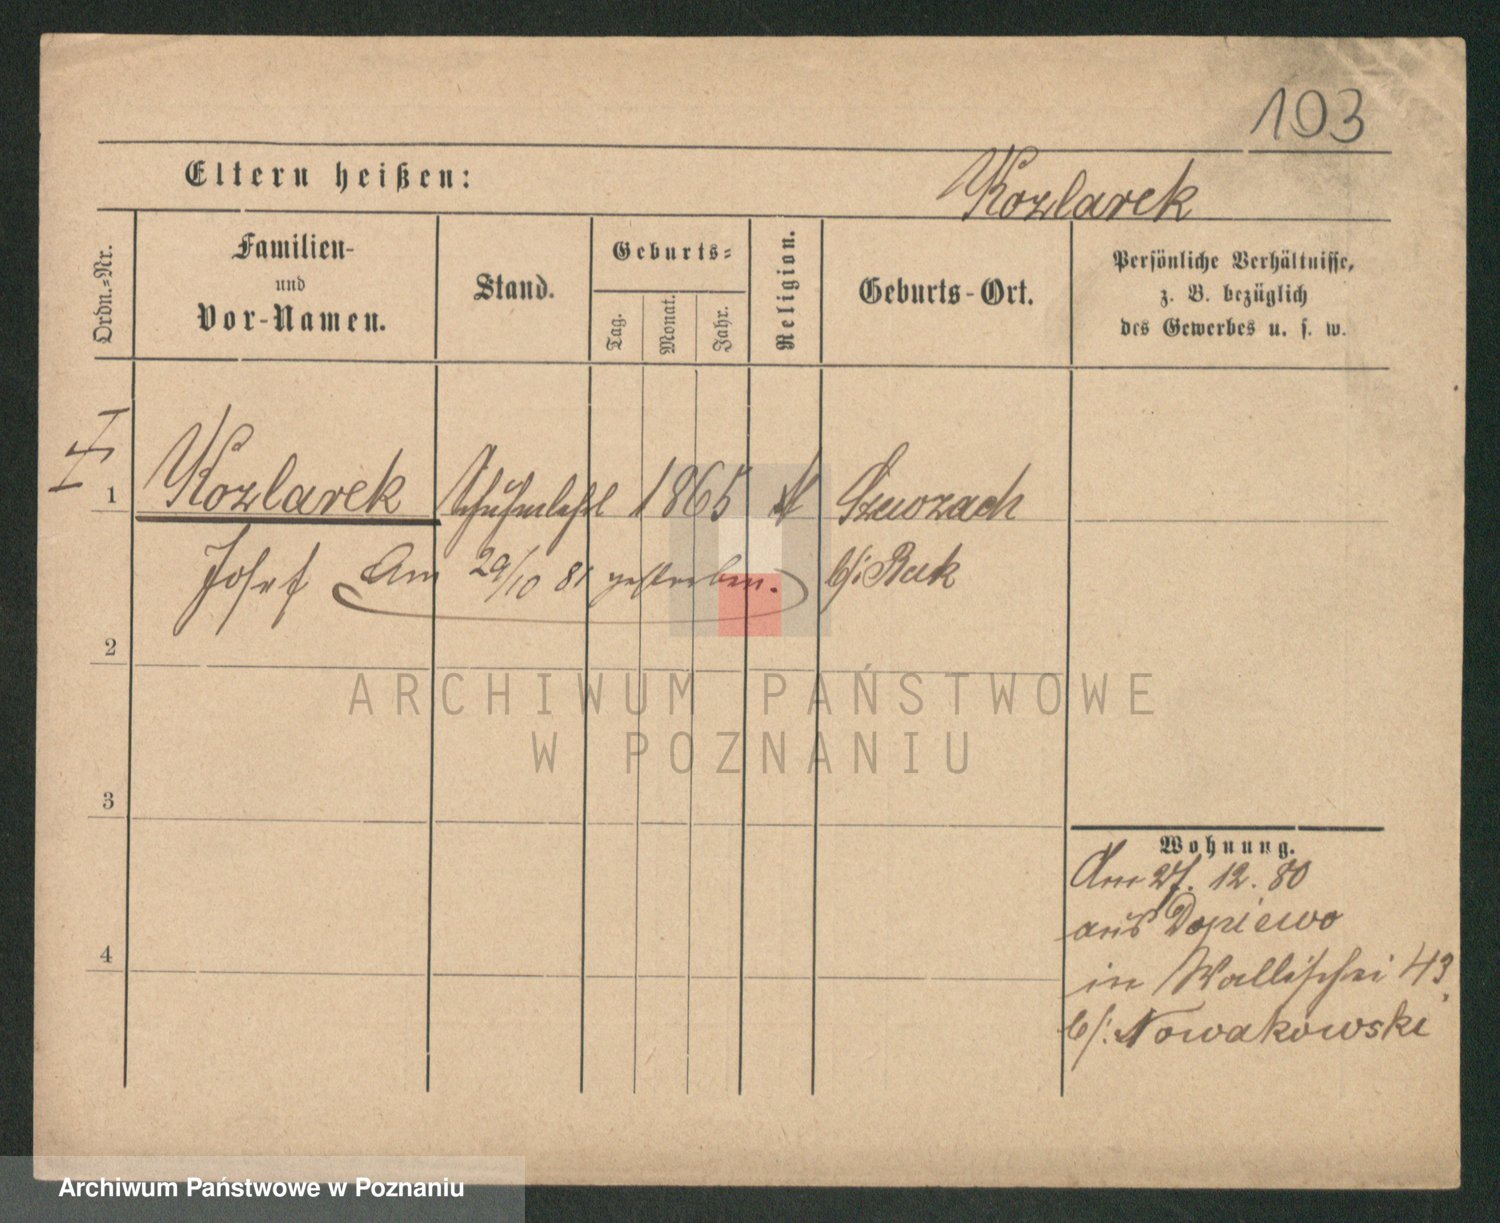 193
Eltern heißen:
Kozlarek
Ordn.-Nr.
Familien-
und
Vor-Namen.
Stand.
Geburts-
Tag.
Monat.
Jahr.
Religion.
Geburts-Ort.
Persönliche Verhältnisse,
z. B. bezüglich
des Gewerbes u. s. w.
1
Kozlarek
Schuhmlehrl
1865
k
Szewozach
Josef
Am 29/10 81 gestorben.
b/: Buk
2
ARCHIWUM PAŃSTWOWE
W POZNANIU
3
4
Wohnung.
Am 27. 12. 80
aus Dopiewo
in Wallischei 43
b/: Nowakowski
Archiwum Państwowe w Poznaniu